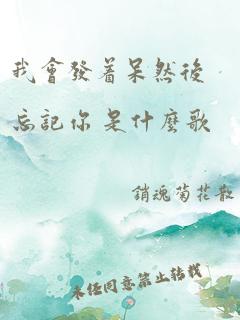 我會發着呆然後
忘記你 是什麼歌
銷魂菊花散
未经同意禁止转载